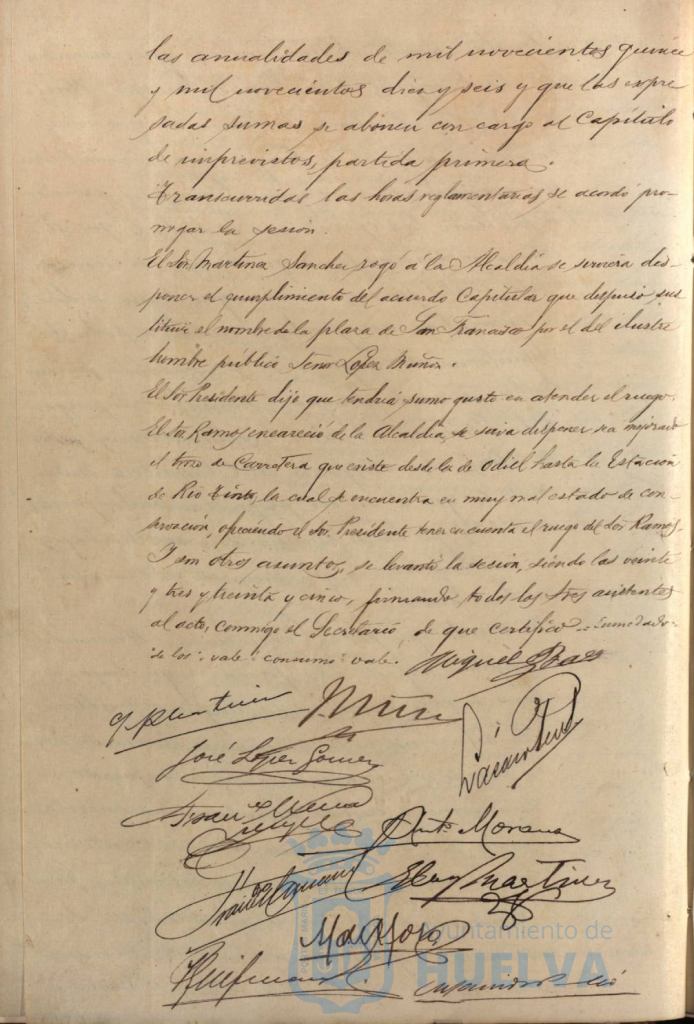 las anualidades de mil novecientos quince
y mil novecientos diez y seis y que las expre
sadas sumas se abonen con cargo al Capítulo
de imprevistos, partida primera.
Transcurridas las horas reglamentarias, se acordó pro-
rrogar la sesión.
El Sor. Martinez Sanchez rogó á la Alcaldía se sirviera dis-
poner el cumplimiento del acuerdo Capitular que dispuso sus
tituir el nombre de la plaza de San Francisco por el del ilustre
hombre publico Señor Lopez Muñoz.
El Sor Presidente dijo que tendría sumo gusto en atender el ruego.
El Sor. Ramos encareció de la Alcaldía, se sirva disponer sea mejorado
el trozo de Carretera que existe desde la de Odiel hasta la Estación
de Rio Tinto, la cual se encuentra en muy mal estado de con-
servación, ofreciendo el Sor. Presidente tener en cuenta el ruego del Sor Ramos.
Y sin otros asuntos, se levantó la sesión, siendo las veinte
y tres y treinta y cinco, firmando todos los Sres asistentes
al acto, conmigo el Secretario, de que certifico.
de los: vale: consumo: vale. Miguel
José López Gomez
Anto. Moreno
Eloy Martinez
M de Mora
Ayuntamiento de
HUELVA